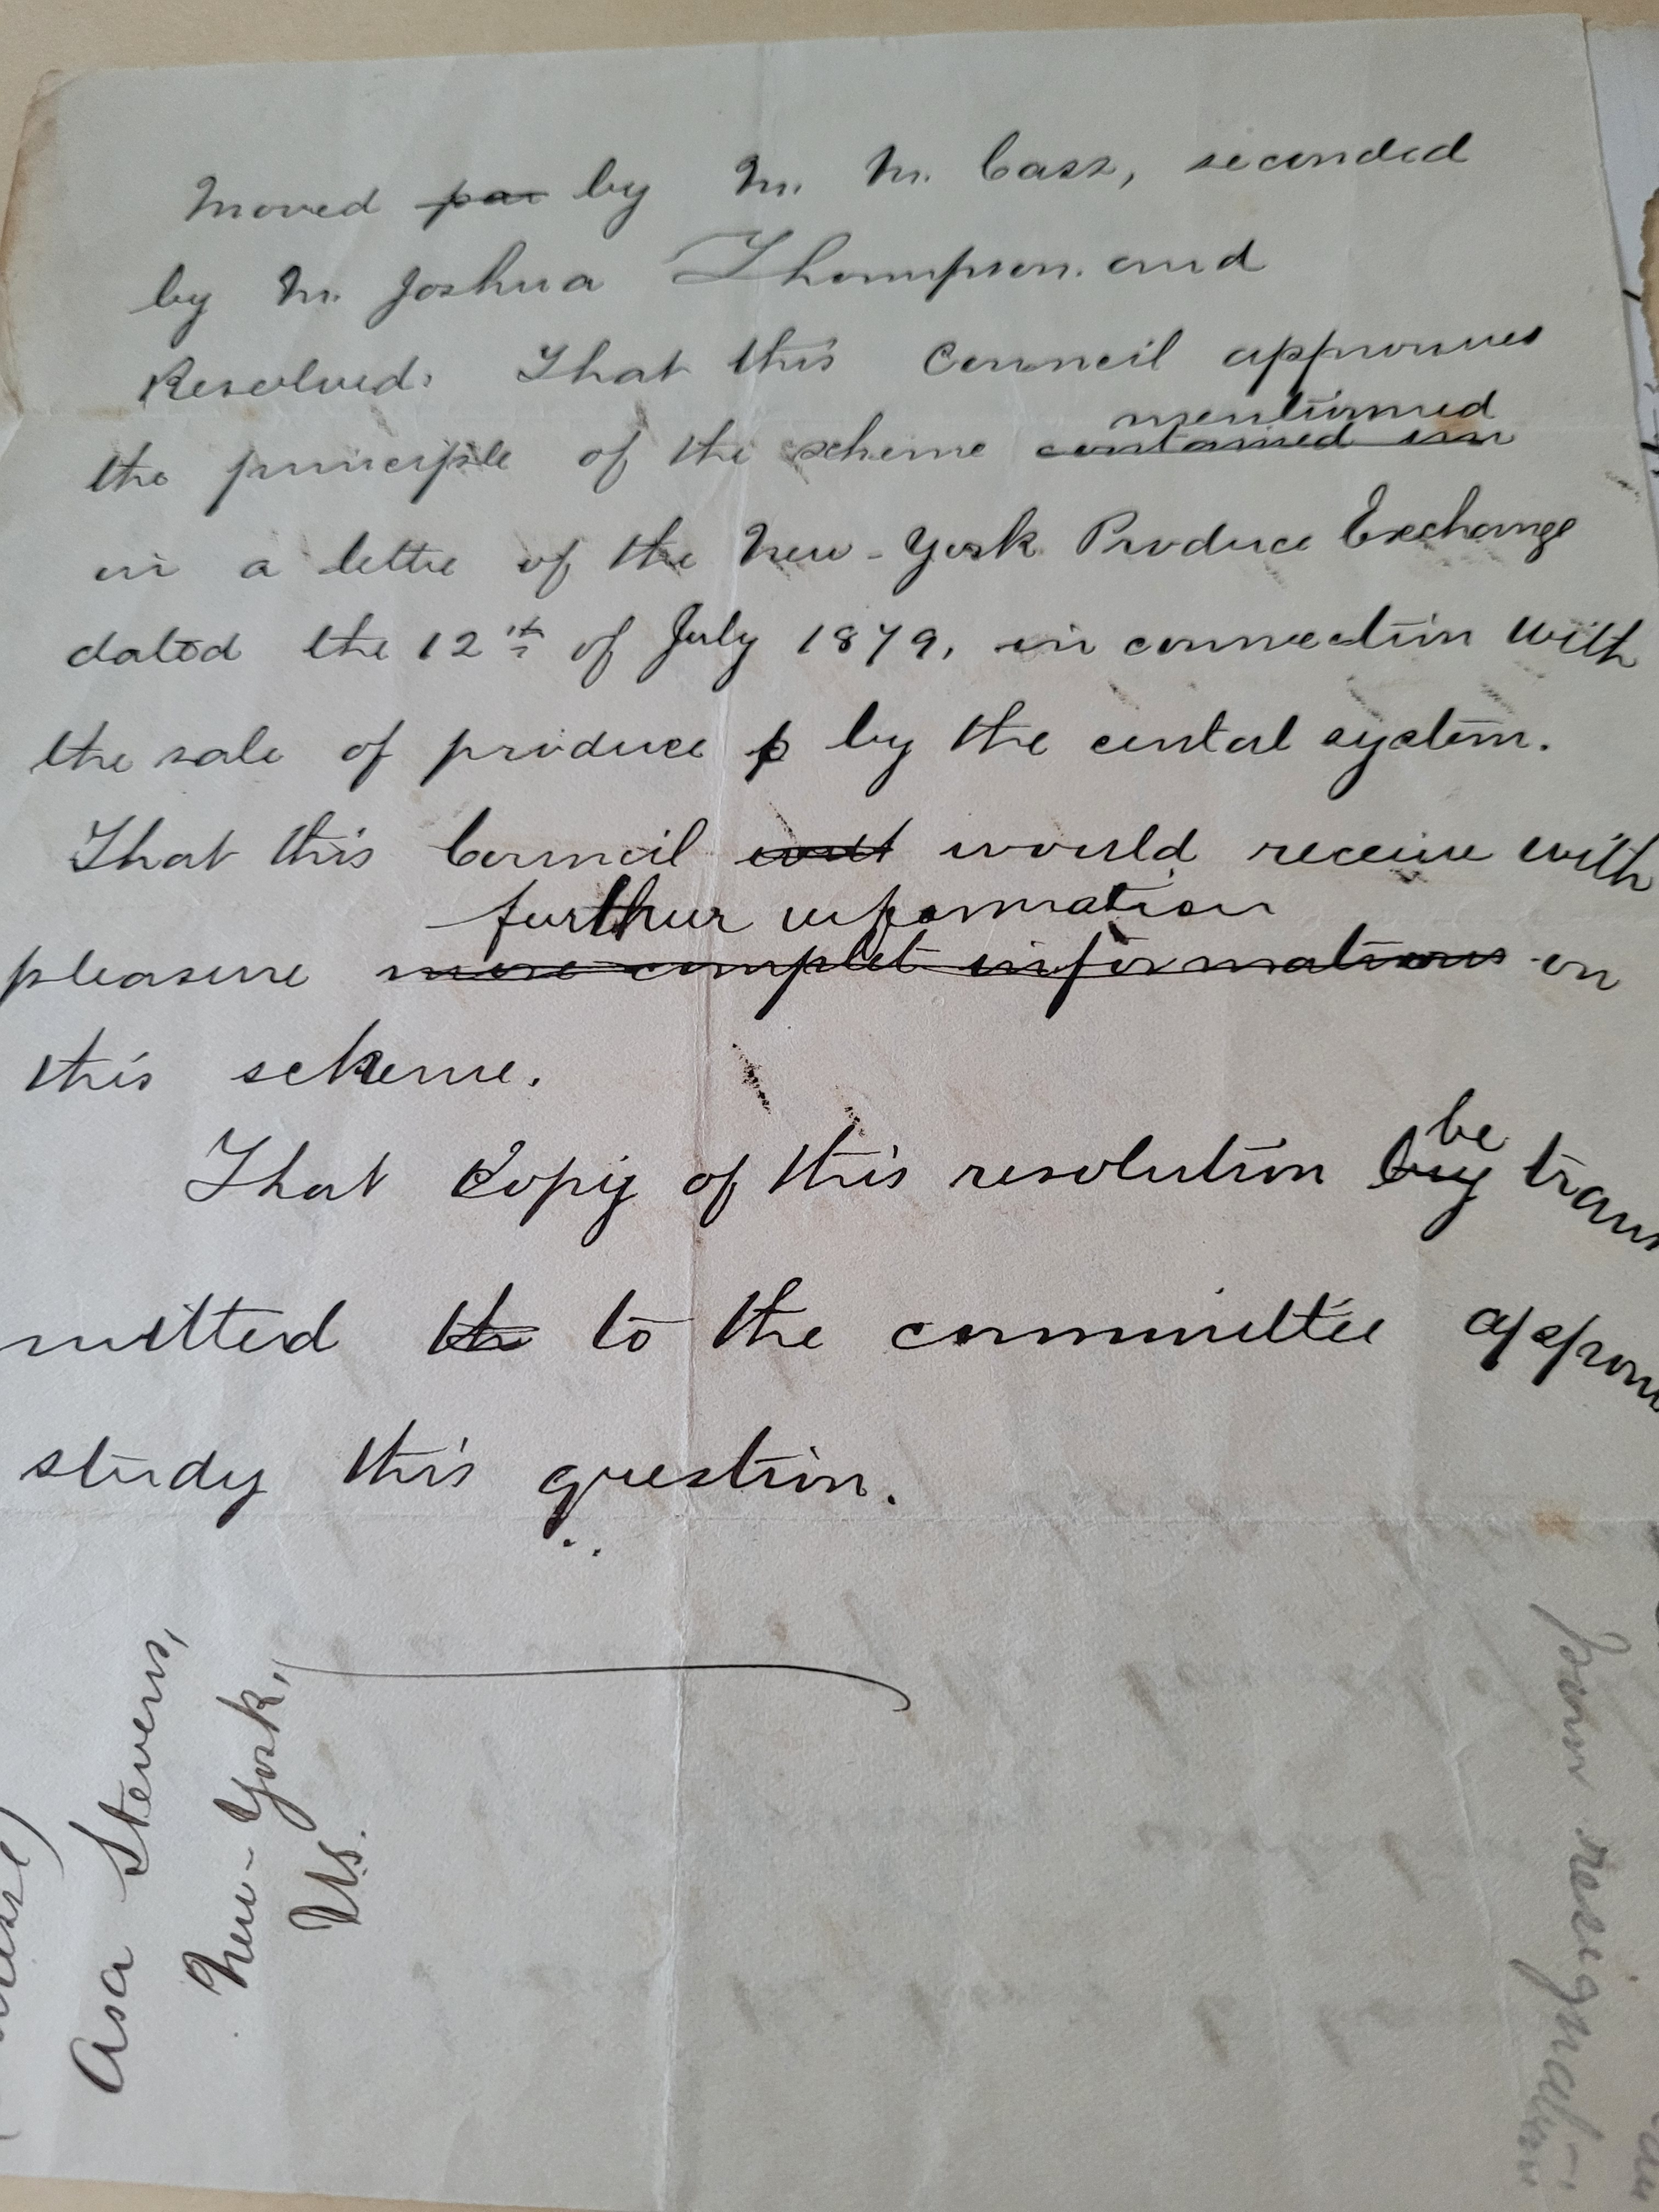 Moved par by M. M. Cass, seconded
by M. Joshua Thompson. and
Resolved: That this Council approuves
mentionned
the principle of the scheme contained inn
in a lettre of the New-York Produce Exchange
dated the 12th of July 1879, in connection with
the sale of produce p by the cental system.
That this Council would receive with
further information
pleasure more complet informations on
this scheme.
be
That Copy of this resolution by trans
mitted the to the committee
study this question.
Asa Stevens,
New-York,
U.S.